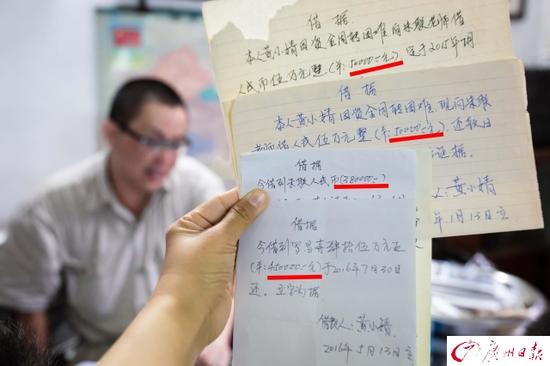 借据
本人黄小婧因资金周转困难向朱敬老师借
人民币伍万元整(¥:50000元)定于2015年
借据
本人黄小婧因资金周转困难,现向朱敬
老师借人民伍万元整(¥:50000元).还款日
黄小婧
1月13日立
借据
今借到朱敬人民币(380000-)
借据
今借到罗 肆拾伍万元正
(¥:450000.-元)于2016年7月30日
还。立字为据
借款人:黄小婧
2016年5月13日立
广州日报